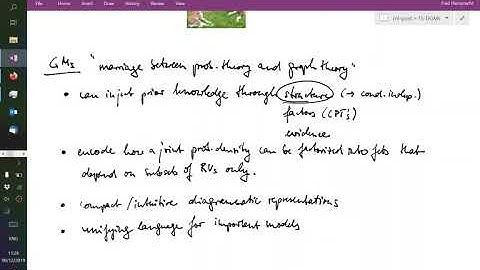 Fred Hamprecht
File Home Insert Draw History Review View Help
GMs "marriage between prob. theory and graph theory"
• can inject prior knowledge through structure (→ cond. indep.)
factors (CPTs)
evidence
• encode how a joint prob. density can be factorised into fcts that
depend on subsets of RVs only.
• compact / intuitive diagrammatic representations
• unifying language for important models
ENG
11:24
06/12/2019